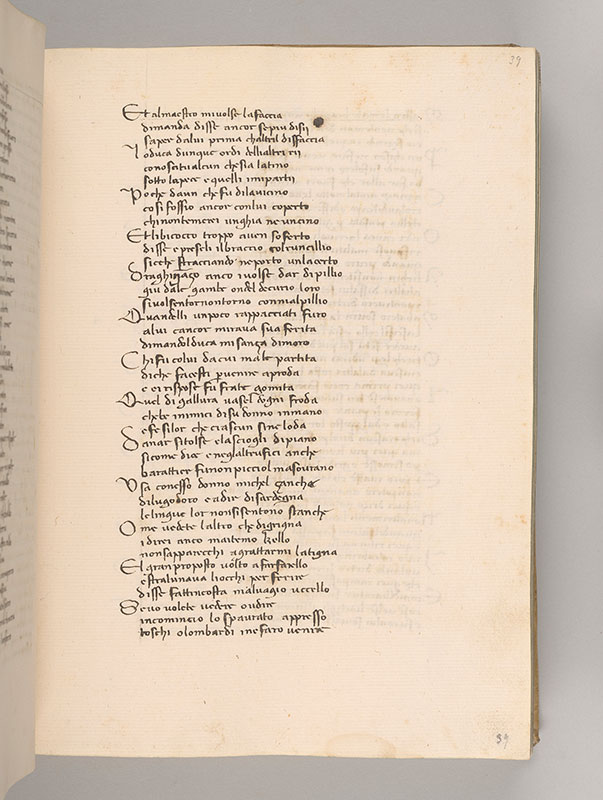 39
Et almaestro mivolse lafaccia
dimanda disse ancor sepiu disii
saper dalui prima chaltril disfaccia
Loduca dunque or di delialtri rii
conositualcun chesia latino
sotto lapece e quelli imiparti
Poche daun chefu dilavicino
cosi fossio ancor conlui coperto
chinontemerei unghia neuncino
Et libicocco troppo aven soferto
disse epreseli ilbraccio colruncillio
sicche stracciando neporto unlacerto
Draghignaço anco ivolse dar dipillio
giu dale gambe ondel decurio loro
sivolsentornontorno conmalpillio
Quandelli unpoco rappacciati furo
alui cancor mirava sua ferita
dimandolduca mi sança dimoro
Chi fu colui dacui mala partita
di che facesti pervenire aproda
e ei rispose fu frate gomita
Quel di gallura vasel degni froda
chebe inimici disu donno inmano
e fe silor che ciascun sine loda
Danar sitolse elasciogli dipiano
sicome dice e neglaltrufici anche
barattier funon picciol masovrano
Usa conesso donno michel çanche
dilugodoro e adir disardegna
lelingue lor nonsisentono stanche
O me vedete laltro che digrigna
i direi anco maitemo kello
nonsapparecchi agrattarmi latigna
El gran proposto volto afarfarello
estralunava liocchi per ferire
disse fattincosta malvagio uccello
Se vo volete vedere oudire
incomincio lo spaurato appresso
toschi olombardi inefaro venire
39